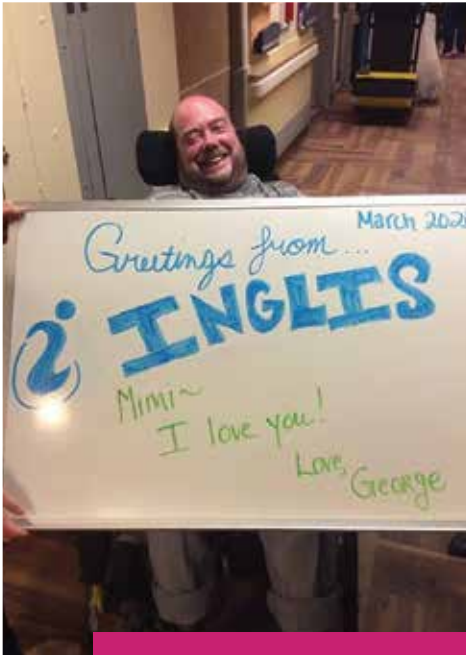 March 202
Greetings from...
i INGLIS
Mimi~
I love you!
Love,
George